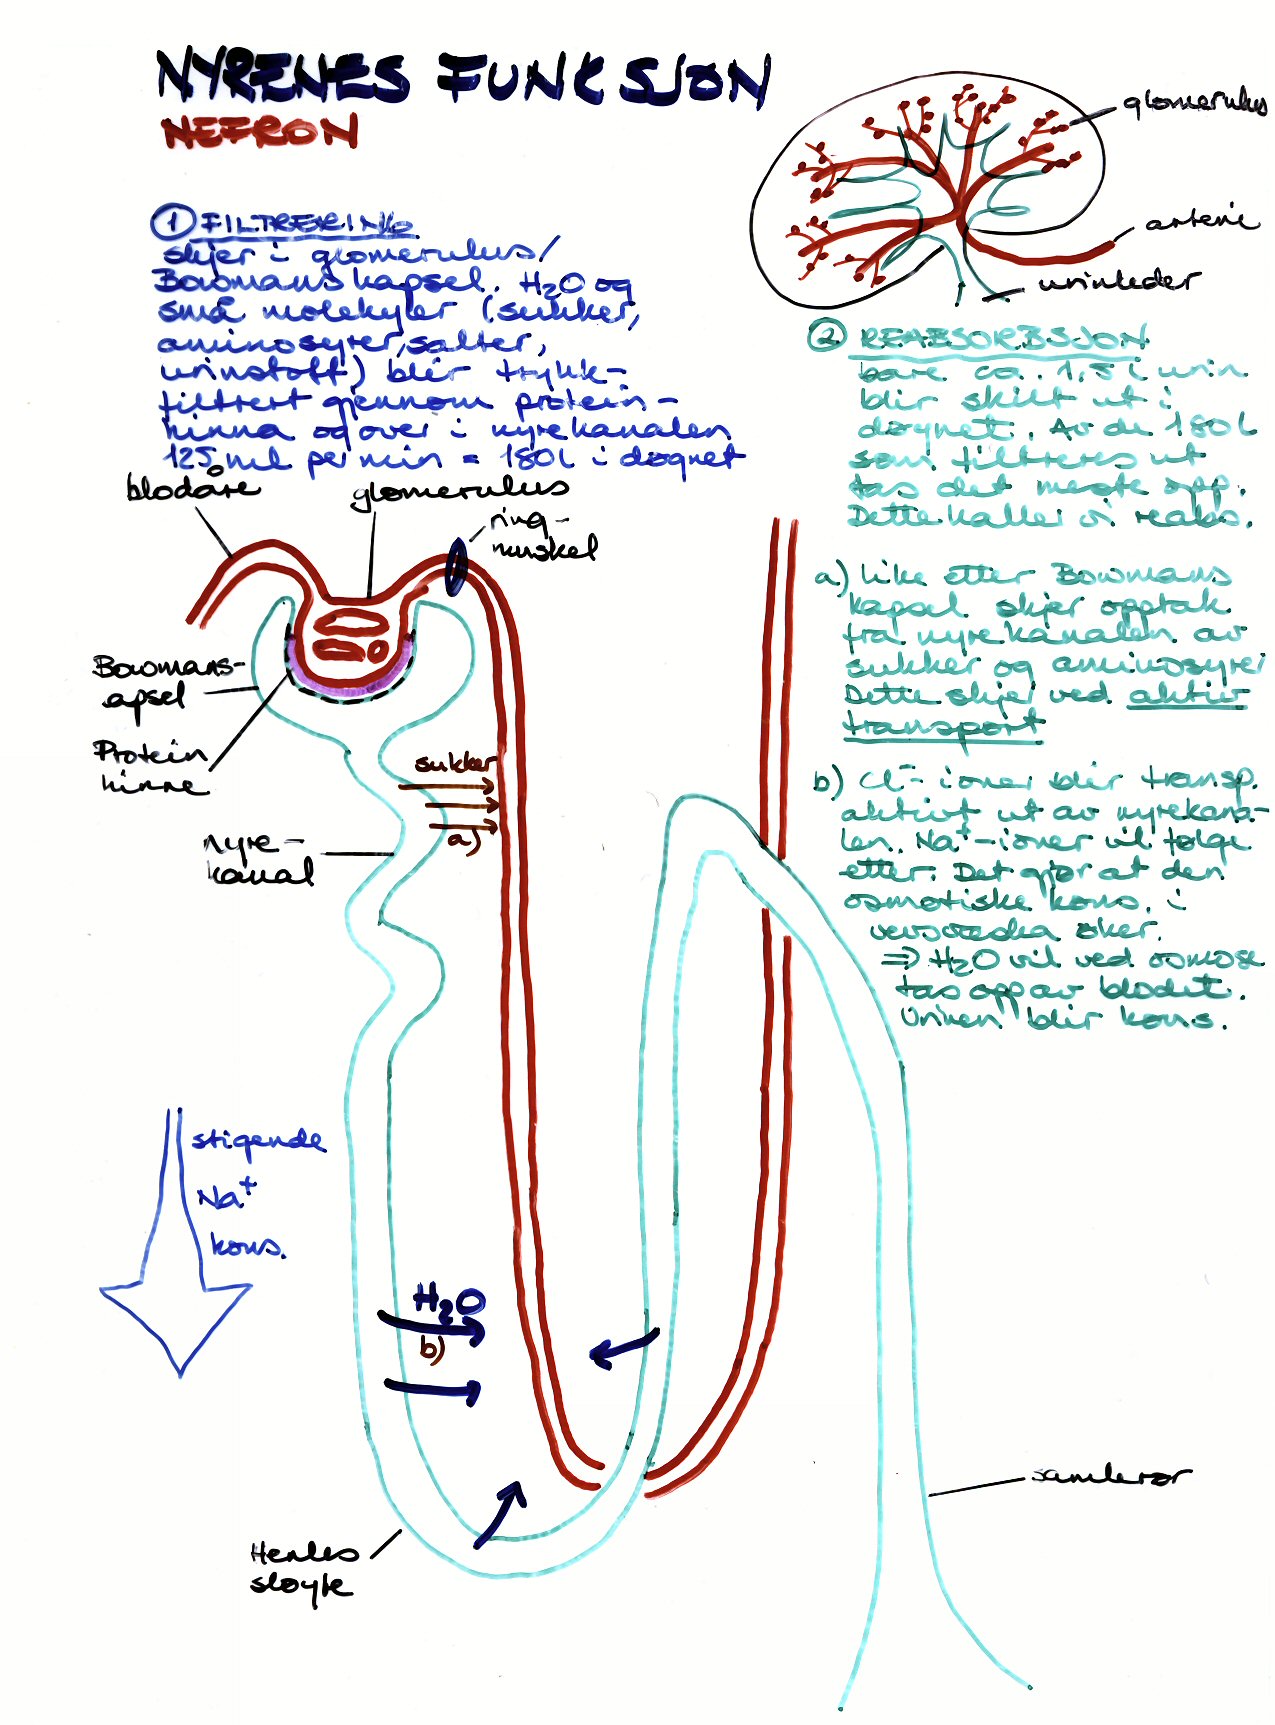 NYRENES FUNKSJON
NEFRON
glomerulus
arterie
urinleder
① FILTRERING
skjer i glomerulus/
Bowmans kapsel. H₂O og
små molekyler (sukker,
aminosyrer, salter,
urinstoff) blir trykk-
filtrert gjennom protein-
hinna og over i nyrekanalen
125 ml per min = 180 L i døgnet
② REABSORBSJON
bare ca. 1,5 L urin
blir skilt ut i
døgnet. Av de 180 L
som filtreres ut
tas det meste opp.
Dette kaller vi reabs.
a) like etter Bowmans
kapsel skjer opptak
fra nyrekanalen av
sukker og aminosyrer
Dette skjer ved aktiv
transport
b) Cl⁻- ioner blir transp.
aktivt ut av nyrekana-
len. Na⁺-ioner vil følge
etter. Det gjør at den
osmotiske kons. i
vevsvæska øker.
⇒ H₂O vil ved osmose
tas opp av blodet.
Urinen blir kons.
blodåre
glomerulus
ring-
muskel
Bowmans-
apsel
Protein
hinne
sukker
a)
nyre-
kanal
stigende
Na⁺
kons.
H₂O
b)
Henles
sløyfe
samlerør